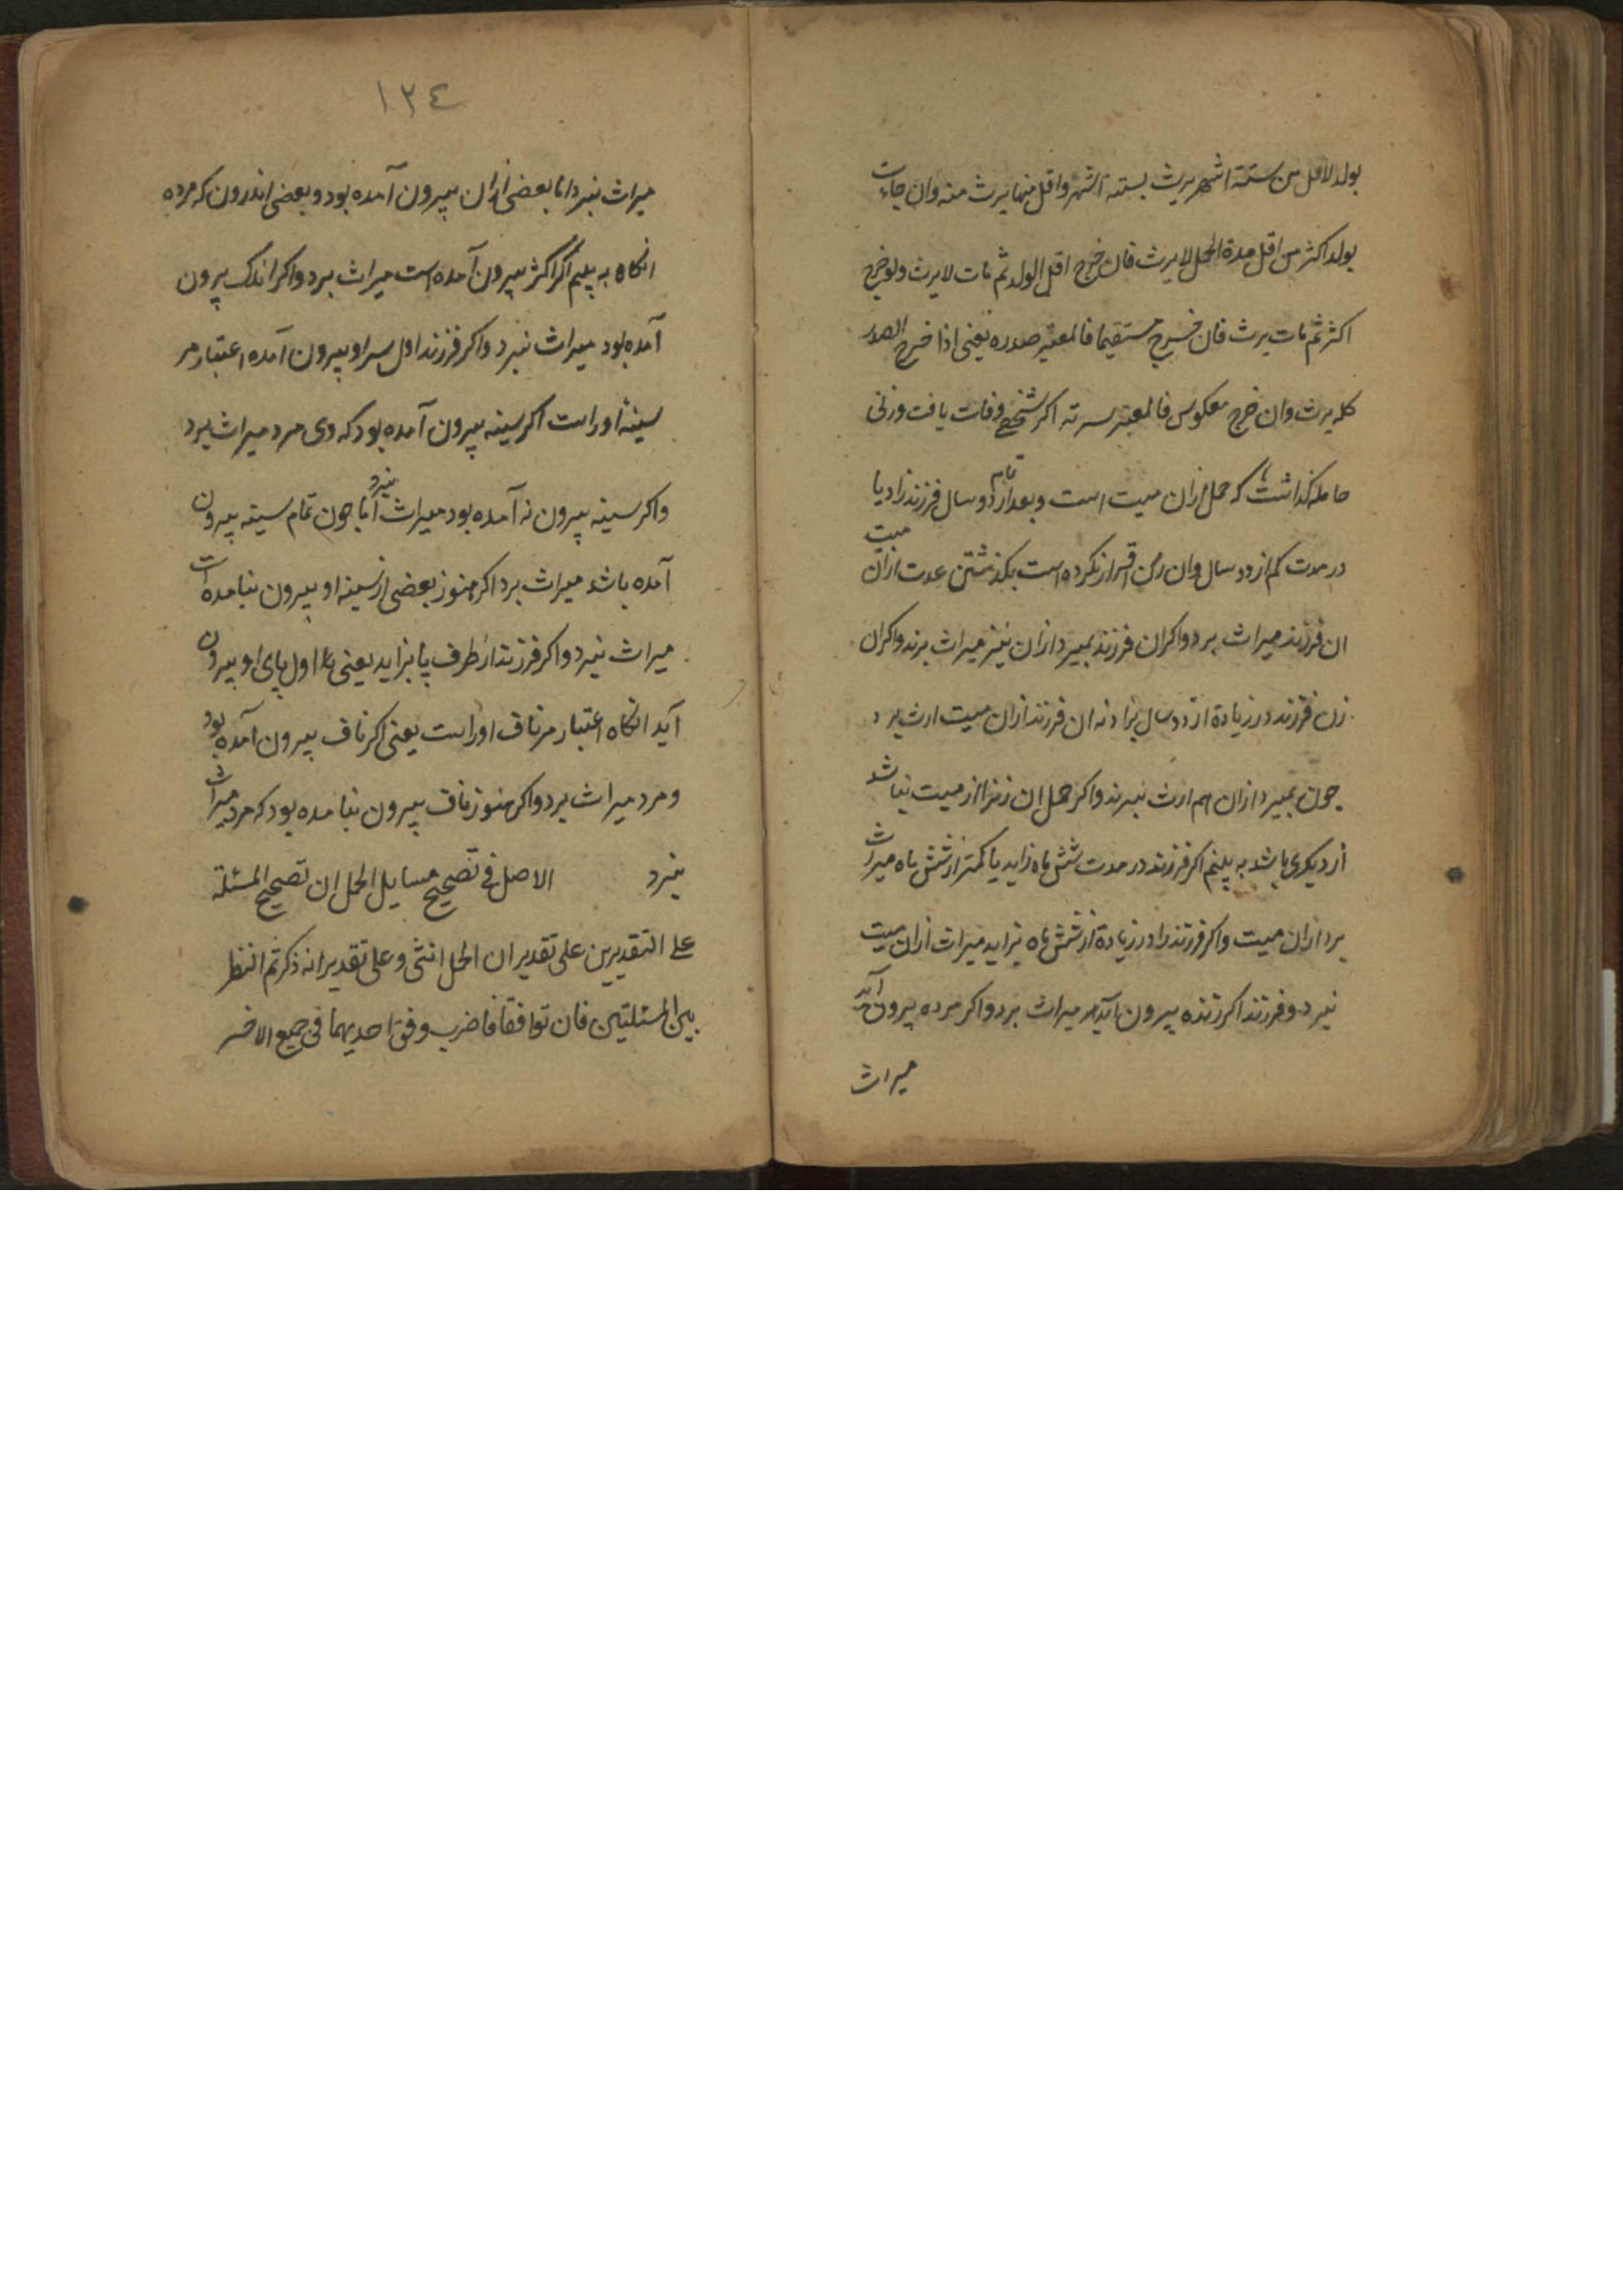 بولد لاقل من ستة اشهر یرث بستة اشهر واقل منها یرث منه وان جاءت
بولد اکثر من اقل مدة الحمل لا یرث فان خرج اقل الولد ثم مات لا یرث ولو خرج
اکثر ثم مات یرث فان خرج مستقیما فالمعتبر صدره یعنی اذا خرج الصدر
کله یرث وان خرج معکوس فالمعتبر سرته اکر شخصی وفات یافت وزنی
حامله کذاشت که حمل ازان میت است وبعد از تمام دو سال فرزند زاد یا
در مدت کم از دو سال وان زن اقرار نکرده است بکذشتن عدت ازان میت
ان فرزند میراث برد واکر ان فرزند بمیرد ازان نیز میراث برند واکر ان
زن فرزند در زیادة از دو سال بزاد نه ان فرزند ازان میت ارث برد
چون بمیرد ازان هم ارث نبرند واکر حمل ان زن از میت نباشد
از دیکری باشد به بینم اکر فرزند در مدت شش ماه زاید یا کمتر از شش ماه میراث
برد ازان میت واکر فرزند را در زیادة از شش ماه بزاید میراث ازان میت
نبرد وفرزند اکر زنده بیرون آید میراث برد واکر مرده بیرون آید
میراث
١٣٤
میراث نبرد اما بعضی ازان بیرون آمده بود وبعضی اندرون که مرده
انکاه به بینم اکر اکثر بیرون آمده است میراث برد واکر اندک بیرون
آمده بود میراث نبرد واکر فرزند اول سر او بیرون آمده اعتبار مر
سینه اوراست اکر سینه بیرون آمده بود که وی مرد میراث برد
واکر سینه بیرون نه آمده بود میراث نبرد اما چون تمام سینه بیرون
آمده باشد میراث برد اکر هنوز بعضی از سینه او بیرون نیامده است
میراث نبرد واکر فرزند از طرف پا بزاید یعنی اول پای او بیرون
آید انکاه اعتبار مر ناف اوراست یعنی اکر ناف بیرون آمده بود
ومرد میراث برد واکر هنوز ناف بیرون نیامده بود که مرد میراث
نبرد الاصل فی تصحیح مسایل الحمل ان تصحیح المسئلة
علی التقدیرین علی تقدیر ان الحمل انثی وعلی تقدیر انه ذکر ثم انظر
بین المسئلتین فان توافقا فاضرب وفق احدیهما فی جمیع الاخر